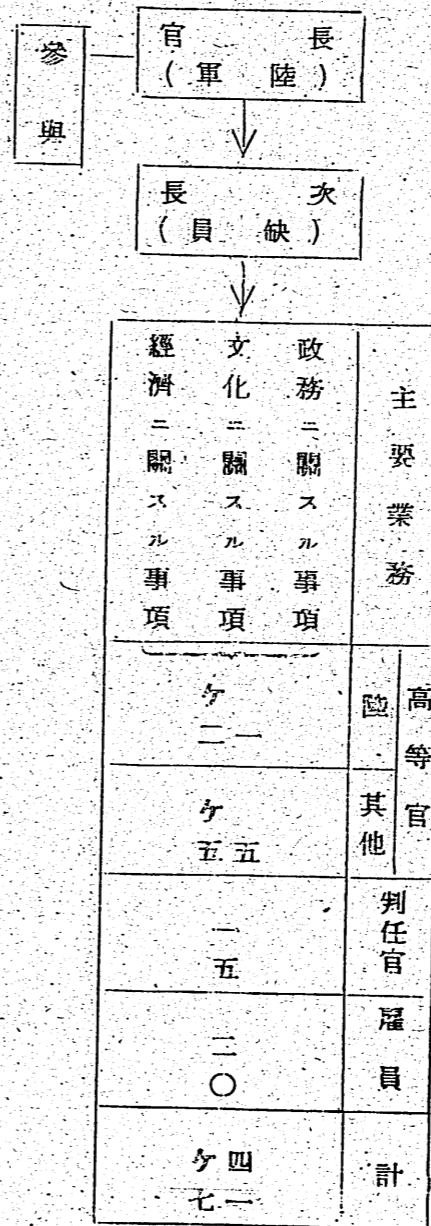 長官
(陸軍)
參與
次長
(缺員)
主要業務
政務ニ關スル事項
文化ニ關スル事項
經濟ニ關スル事項
高等官
陸
一
ケ二
其他
五
ケ五
判任官
一五
雇員
二〇
計
四一
ケ七